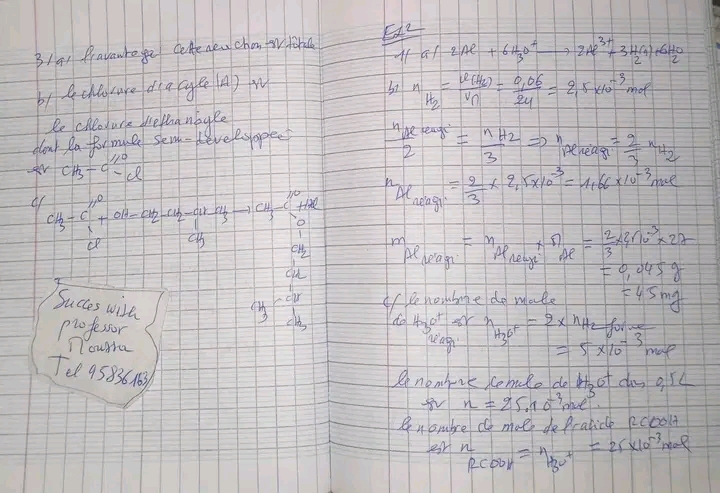 3/ a/ L'avantage cette reaction est totale
b/ le chlorure d'acyle (A) est
le chlorure d'ethanoyle
dont la formule semi-developpée
est CH3-C=O
Cl
c/ CH3-C=O + OH-CH2-CH2-CH-CH3 → CH3-C=O + HCl
Cl
CH3
O
CH2
CH2
CH3-CH
CH3
Succes with
professor
Moussa
Tel 95836163
Ex2
1/ a/ 2Al + 6H3O+ → 2Al3+ + 3H2(g) + 6H2O
b/ nH2 = V(H2)/VM = 0,06/24 = 2,5×10^-3 mol
nAl réagi/2 = nH2/3 ⇒ nAl réagi = 2/3 nH2
nAl réagi = 2/3 × 2,5×10^-3 = 1,66×10^-3 mol
mAl réagi = nAl réagi × MAl = 2/3 × 2,5×10^-3 × 27
= 0,045 g
= 45 mg
c/ le nombre de mole
de H3O+ réagi est nH3O+ = 2× nH2 formé
= 5×10^-3 mol
le nombre de mole de H3O+ dans 0,5L
est n = 25.10^-3 mol
le nombre de mole de l'acide RCOOH
est n RCOOH = nH3O+ = 25×10^-3 mol